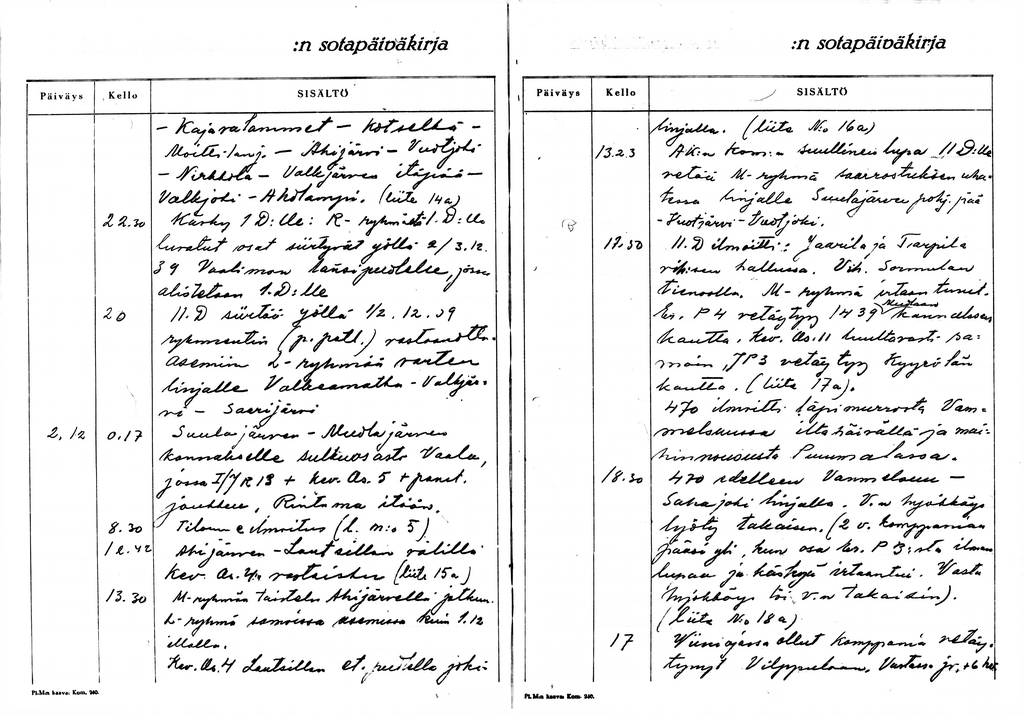 :n sotapäiväkirja
Päiväys Kello SISÄLTÖ
- Kajavalammet - Kotselkä -
- Ahijärvi - Vuotjoki
- Nirkkola - Valkjärven itäpää -
Valkjoki - Ahdlampi. (liite 14a)
22.30 Käsky 1 D:lle: R- ryhmästä 1.D:lle
luvatut osat siirtyvät yöllä 2/3.12.
39 Vaalimon länsipuolelle, jossa
alistetaan 1.D:lle
20 11.D siirtää yöllä 1/2.12.39
rykmentin
asemiin L-ryhmää varten
linjalle Valkeamatka - Valkjär-
vi - Saarijärvi
2.12 0.17 Suulajärven - Muolajärven
kannakselle sulkuosasto Vaala,
jossa I/JR13 + Kev. Os. 5 + pans.
joukkue, Rintama itään.
8.30 Tilanneilmoitus (L. n:o 5)
12.42 Ahijärven - Lautsillan välillä
Kev. Os. 4:n vastaisku (liite 15a)
13.30 M-ryhmän taistelu Ahijärvellä jatkuu.
L-ryhmä samoissa asemissa kuin 1.12
illalla.
Kev. Os. 4 Lautsillan et. puolella joki-
Pt.M:n kaava: Kom. 260.
:n sotapäiväkirja
Päiväys Kello SISÄLTÖ
linjalla. (liite N:o 16a)
13.23 AK:n Kom:n suullinen lupa 11 D:lle
vetää M-ryhmä saarrostuksen uha-
tessa linjalle Suulajärven pohj. pää
- Vuotjärvi - Vuotjoki.
17.50 11.D ilmoitti: Jaarila ja Tarpila
vih:sen hallussa. Vih. Sormulan
tienoolla. M-ryhmä irtaantunut.
Er. P 4 vetäytyy 1439 Muolaan kannaksen
kautta. Kev. Os. 11 luultavasti sa-
moin, JP3 vetäytyy Kyyrölän
kautta. (Liite 17a).
470 ilmoitti läpimurrosta Vam-
melsuussa iltapäivällä ja mai-
hinnoususta Puumalassa.
18.30 470 edelleen Vammelsuun -
Sahajoki linjalla. V.n hyökkäys
lyöty takaisin. (2 v. komppanian
pääsi yli, kun osa Er. P 3:sta ilman
lupaa ja käskyä irtaantui. Vasta
hyökkäys löi v:n takaisin).
(Liite N:o 18a)
17 ollut komppania vetäy-
tynyt Vilppulaan.
Pt.M:n kaava: Kom. 260.